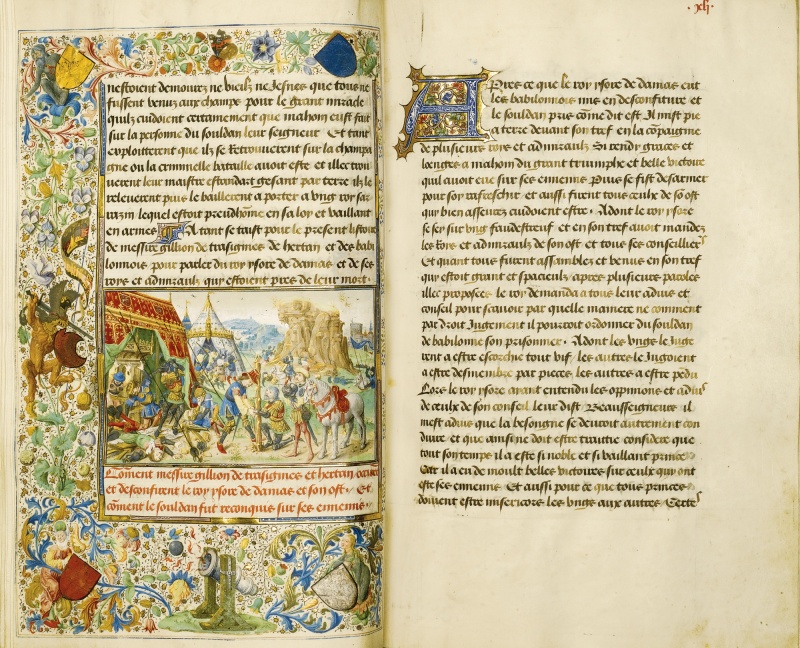 nestoient demourez ne vielz ne Jesnes que tous ne
fussent venus aux champs pour le grant miracle
quilz cuidoient certainement que mahom eust fait
sur la personne du souldan leur seigneur Et tant
exploitterent que ilz se Retrouverent sur la champa
gne ou la criminelle bataille avoit este et illec trou
uerent leur maistre estandart gesant par terre ilz le
releuerent puis le baillerent a porter a vng roy sar
razin lequel estoit preudhome en sa loy et vaillant
en armes A tant se taist pour le present listoire
de messire gillion de trasignies de hertan et des babi
lonnois pour parler du roy ysore de damas et de ses
roys et admiraulz qui estoient pres de leur mort
Coment messire gillion de trasignies et hertan
et desconfirent le roy ysore de damas et son ost Et
coment le souldan fut recouquis sur ses ennemis
xli
Apres ce que le roy ysore de damas eut
les babilonnois mis en desconfiture et
le souldan pris come dit est Il mist pie
a terre deuant son tref en la copaignie
de plusieurs roys et admiraulz Si rendy graces et
loenges a mahom du grant triumphe et belle victoire
quil auoit eue sur ses ennemis Puis se fist desarmer
pour soy rafreschir et aussi firent tous ceulx de so ost
qui bien asseurez cuidoient estre Adont le roy ysore
se sey sur vng faudestuef et en son tref auoit mandez
les roys et admiraulz de son ost et tous ses conseilliers
Et quant tous furent assamblez et venus en son tref
qui estoit grant et spacieulx apres plusieurs paroles
illec proposees le roy demanda a tous leur aduis et
conseil pour scauoir par quelle maniere ne comment
par droit Jugement il pourroit ordonner du souldan
de babilonne son prisonnier Adont les vngs le Juge
rent a estre escorche tout vif les autres le Jugoient
a estre desmembre par pieces les autres a estre pendu
Lors le roy ysore ayant entendu les oppinions et aduis
de ceulx de son conseil leur dist Beausseigneurs il
mest aduis que la besongne se deuroit autrement con
duire et que ainsi ne doit estre traitie considere que
tout son temps il a este si noble et si vaillant prince
Car il a eu de moult belles victoires sur ceulx qui ont
este ses ennemis Et aussi pour ce que tous princes
doiuent estre misericors les vngs aux autres Certes